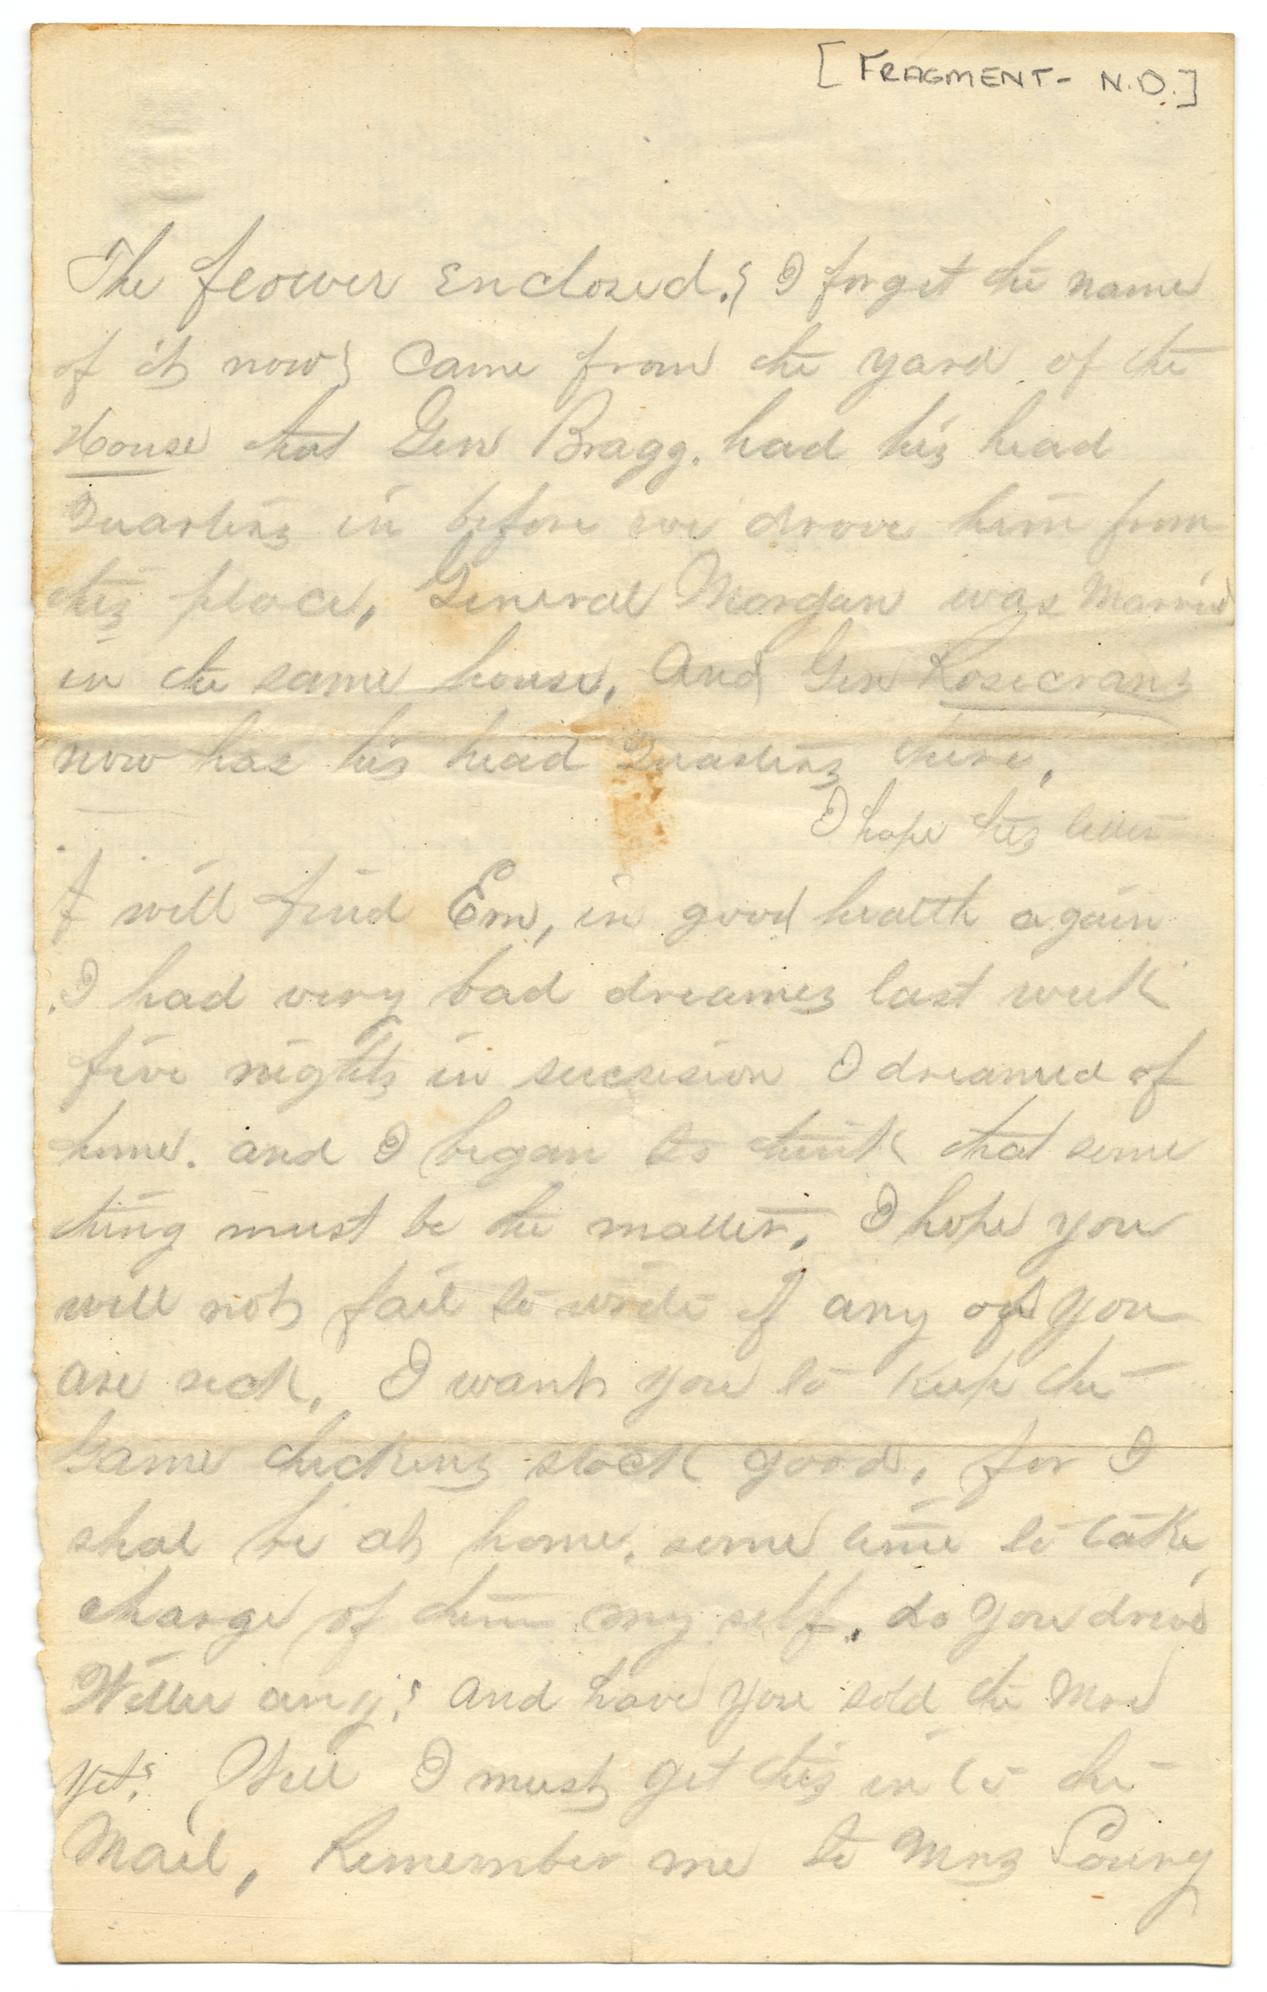 [FRAGMENT - N.D.]
The flower enclosed. { I forget the name
of it now } Came from the yard of the
House that Gen Bragg. had his head
Quarters in before we drove him from
this place, General Morgan was Married
in the same house, And Gen Rosecrans
now has his head Quarters there,
I hope this letter
will find Em, in good health again
I had very bad dreames last week
five nights in succession I dreamed of
home. and I began to think that some
thing must be the matter, I hope you
will not fail to write if any of you
are sick, I want you to keep the
Game chickens stock good, for I
shal be at home, some time to take
charge of them my self, do you drive
any? And have you sold the
yet? Well I must get this in to the
Mail, Remember me to Mrs